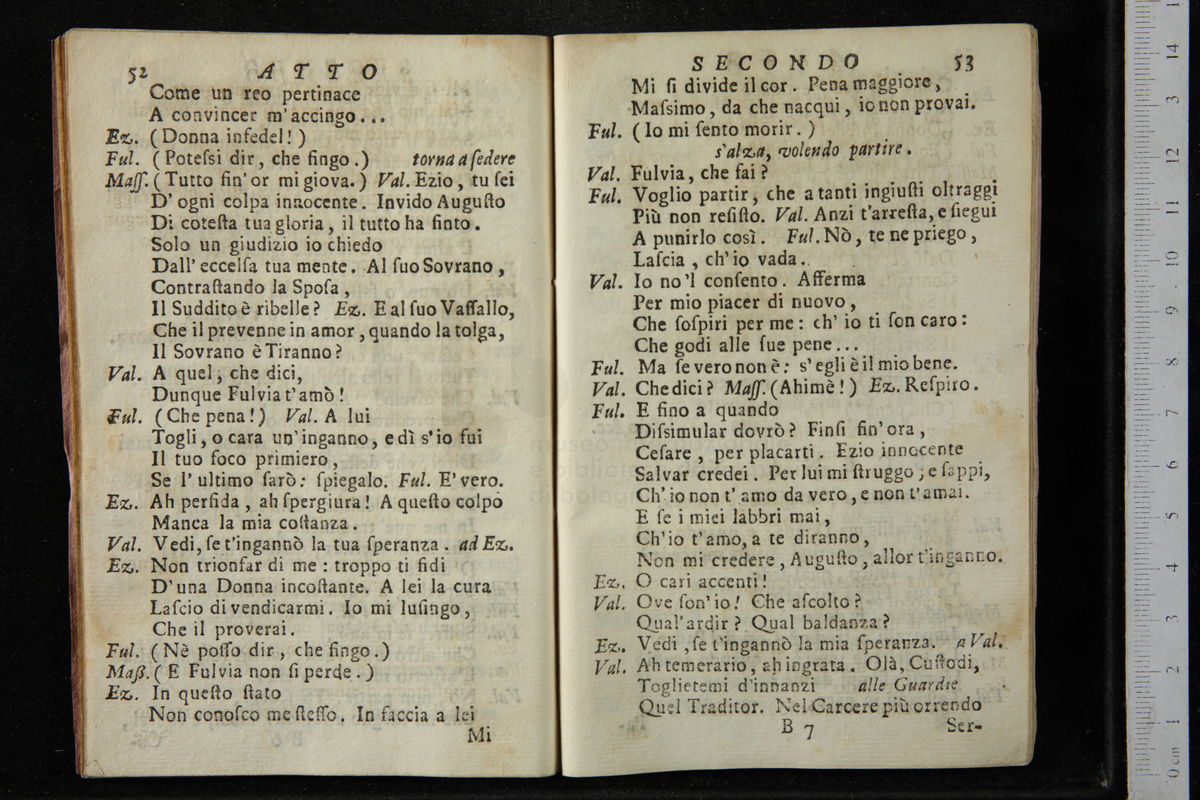 52 ATTO
Come un reo pertinace
A convincer m'accingo...
Ez. (Donna infedel!)
Ful. (Poteſsi dir, che fingo.) torna a ſedere
Maſſ. (Tutto fin' or mi giova.) Val. Ezio, tu ſei
D' ogni colpa innocente. Invido Auguſto
Di coteſta tua gloria, il tutto ha finto.
Solo un giudizio io chiedo
Dall' eccelſa tua mente. Al ſuo Sovrano,
Contraſtando la Spoſa,
Il Suddito è ribelle? Ez. E al ſuo Vaſſallo,
Che il prevenne in amor, quando la tolga,
Il Sovrano è Tiranno?
Val. A quel, che dici,
Dunque Fulvia t'amò!
Ful. (Che pena!) Val. A lui
Togli, o cara un' inganno, e dì s'io fui
Il tuo foco primiero,
Se l' ultimo ſarò: ſpiegalo. Ful. E' vero.
Ez. Ah perfida, ah ſpergiura! A queſto colpo
Manca la mia coſtanza.
Val. Vedi, ſe t'ingannò la tua ſperanza. ad Ez.
Ez. Non trionfar di me: troppo ti fidi
D'una Donna incoſtante. A lei la cura
Laſcio di vendicarmi. Io mi luſingo,
Che il proverai.
Ful. (Nè poſſo dir, che fingo.)
Maß. (E Fulvia non ſi perde.)
Ez. In queſto ſtato
Non conoſco me ſteſſo. In faccia a lei
Mi
SECONDO 53
Mi ſi divide il cor. Pena maggiore,
Maſsimo, da che nacqui, io non provai.
Ful. (Io mi ſento morir.)
s'alza, volendo partire.
Val. Fulvia, che fai?
Ful. Voglio partir, che a tanti ingiuſti oltraggi
Più non reſiſto. Val. Anzi t'arreſta, e ſiegui
A punirlo così. Ful. Nò, te ne priego,
Laſcia, ch'io vada.
Val. Io no'l conſento. Afferma
Per mio piacer di nuovo,
Che ſoſpiri per me: ch' io ti ſon caro:
Che godi alle ſue pene...
Ful. Ma ſe vero non è: s' egli è il mio bene.
Val. Che dici? Maſſ. (Ahimè!) Ez. Reſpiro.
Ful. E fino a quando
Diſsimular dovrò? Finſi fin' ora,
Ceſare, per placarti. Ezio innocente
Salvar credei. Per lui mi ſtruggo; e ſappi,
Ch' io non t' amo da vero, e non t'amai.
E ſe i miei labbri mai,
Ch'io t'amo, a te diranno,
Non mi credere, Auguſto, allor t'inganno.
Ez. O cari accenti!
Val. Ove ſon' io! Che aſcolto?
Qual'ardir? Qual baldanza?
Ez. Vedi, ſe t'ingannò la mia ſperanza. a Val.
Val. Ah temerario, ah ingrata. Olà, Cuſtodi,
Toglietemi d'innanzi alle Guardie
Quel Traditor. Nel Carcere più orrendo
B 7 Ser-